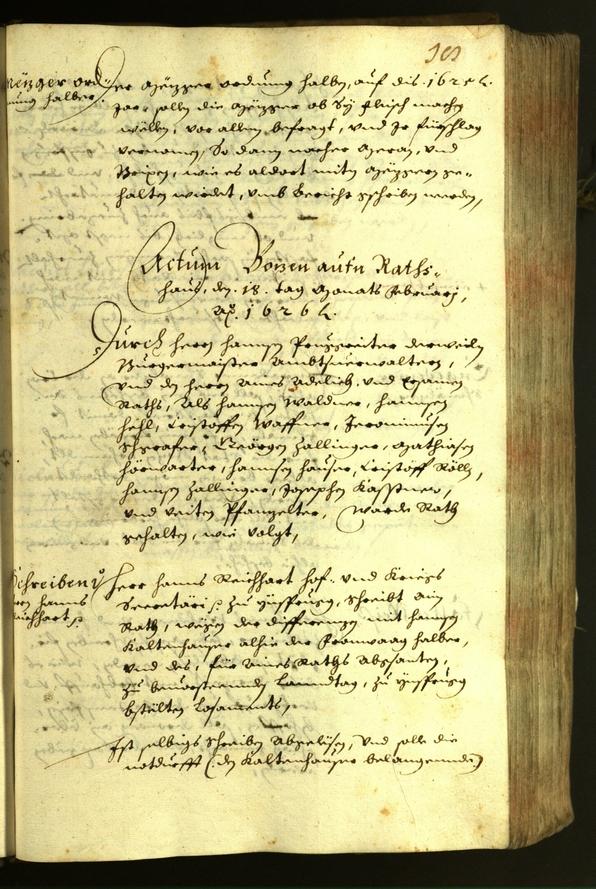 Metzger ord-
nung halber.
Der Metzger ordnung halben, auf dis 1626
Jar, sollen die Metzger ob Sy fleisch machen
wellen, vor allen befragt, und Ir fürschlag
vernomen, So dann nacher Meran, und
Brixen, wie es aldort mitn Metzgern ge-
halten wirdet, umb bericht gschriben werden,
Actum Bozen aufn Raths-
haus, den 18. tag Monats Februarj,
Ao. 1626.
Durch herrn Hannsen derweiln
Burgermaister Ambtsverwaltern,
und den herrn Aines Adelich, und Ersamen
Raths, Als Hannsen Waldner, Hannsen
Hehl, Cristoffen Waffner, Jeronimusen
Schrafer, Geörgen Zallinger, Mathiasen
Hörwarter, Hannsen Hauser, Cristoff Röll,
Hannsen Zallinger, Josephen Kasstner,
und Veiten Pfanzelter, Warde Rath
gehalten, wie volgt,
Schreiben
Hanns
Reichhart
Herr Hanns Reichhart Hof- und Kriegs
Secretäri zu Ynsprugg, schreibt ain
Rath, wegen der differenzen mit Hannsen
Kaltenhauser alhie der Fronwaag halber,
und des, für Aines Raths Absanten,
zu bevorsteenden Lanndtag, zu Ynsprugg
bstelten Losaments,
Ist selbigs schreiben Abgelesen, und solle die
notdurfft (den Kaltenhauser belangennde)